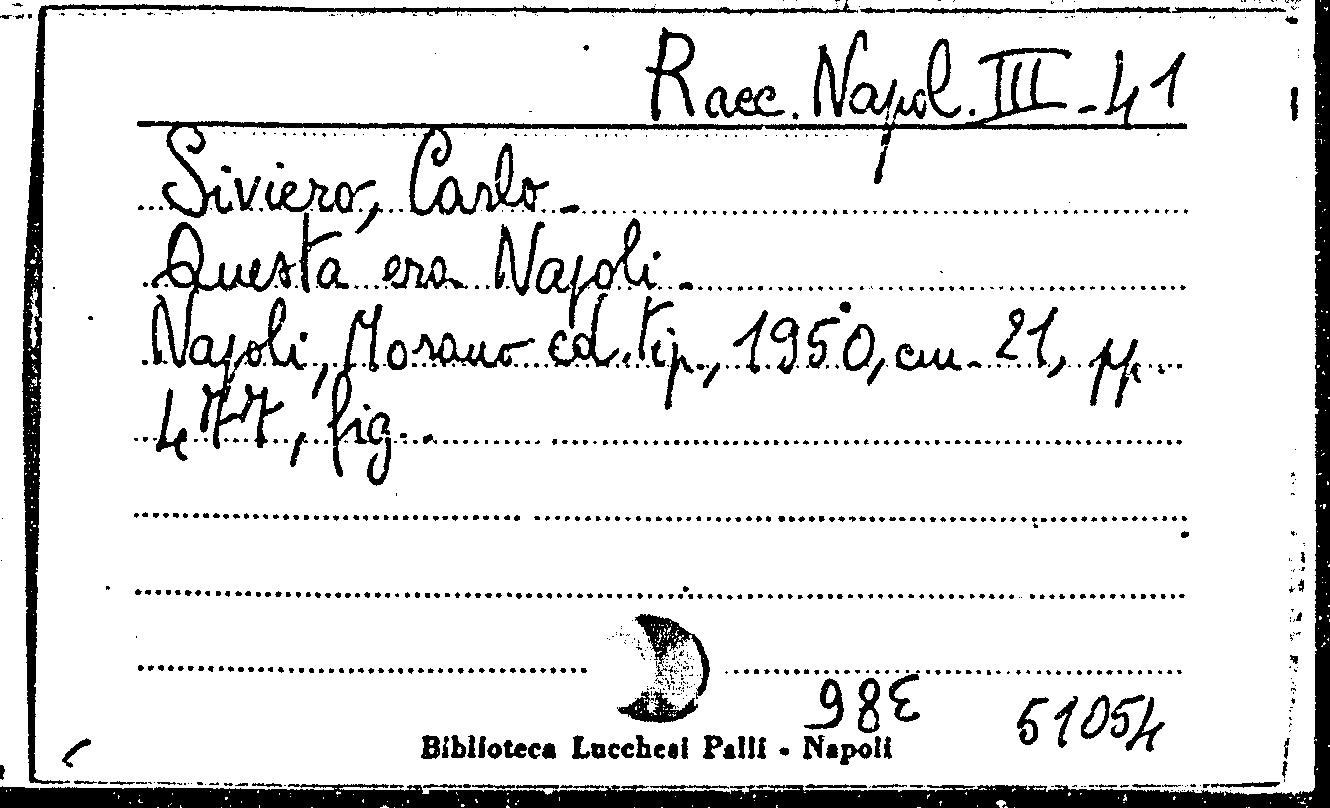 Racc. Napol. III - 41
Siviero, Carlo -
Questa era Napoli -
Napoli, Morano ed. tip., 1950, cm. 21, pp.
477, fig..
51054
Biblioteca Lucchesi Palli - Napoli